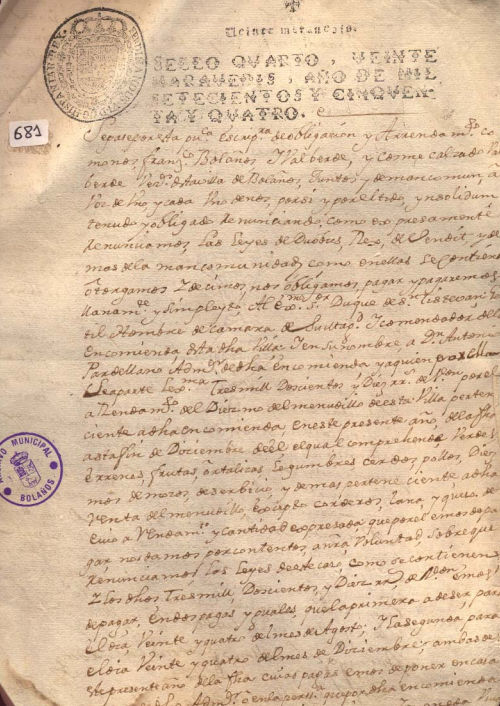 Veinte maravedis.
SELLO QUARTO, VEINTE
MARAVEDIS, AÑO DE MIL
SETECIENTOS Y CINQUEN-
TA Y QUATRO.
681
Sepase por esta puca Escripra de obligacion y Arrendamto co
mo nos Franco Bolaños Y Valberde, y Cosme Calzado Val
berde Vezs de esta villa de Bolaños, Juntos y de mancomun, a
voz de Uno y cada Uno de nos, por si y por el todo, ynsolidum
tenudo y obligado renunciando, como expresamente
renunciamos, las Leyes de Duobus, Rex, de Vendit, y de
mas de la mancomunidad como en ellas se Contiene
otorgamos nos obligamos, pagar y pagaremos
llanamte y simple pleyto Al Exmo Sor Duque de Sn Estevan
til Hombre de Camara de Su Magd Y Comendador de la
Encomienda de dha Villa: Y en su nombre a Dn Antonio
Pardellano Admor de dha encomienda y a quien
sea parte Lexma Tres mill Doscientos y Diez rrs de Von por el
arrendamto del Diezmo del menudillo de esta Villa perten
ciente a dha encomienda en este presente año, de la fha
asta fin de Diciembre de el el qual comprehende Verde
errenes, frutas, ortalicas Legumbres cerdos, pollos, Diez
mos de mozos, de serbicio, y demas pertene ciente a dha
Venta del menudillo, excepto corderos, lana, y queso, de
cuio Arrendamto y cantidad expresada que por el emos de pa
gar nos damos por contentos, a nra Voluntad sobre que
renunciamos las Leyes de este caso, como se contienen
Y los dhos Tres mill Doscientos, y Diez rrs de Von emos
de pagar, en dos pagas yguales, que la primera a de ser para
el dia Veinte y quatro del mes de Agosto; Y la segunda para
el dia Veinte y quatro del mes de Diciembre; ambas de
este presente año de la fha cuias pagas emos de poner en casa
Admor o en la persa que por dha encomienda
ARCHIVO MUNICIPAL
BOLAÑOS